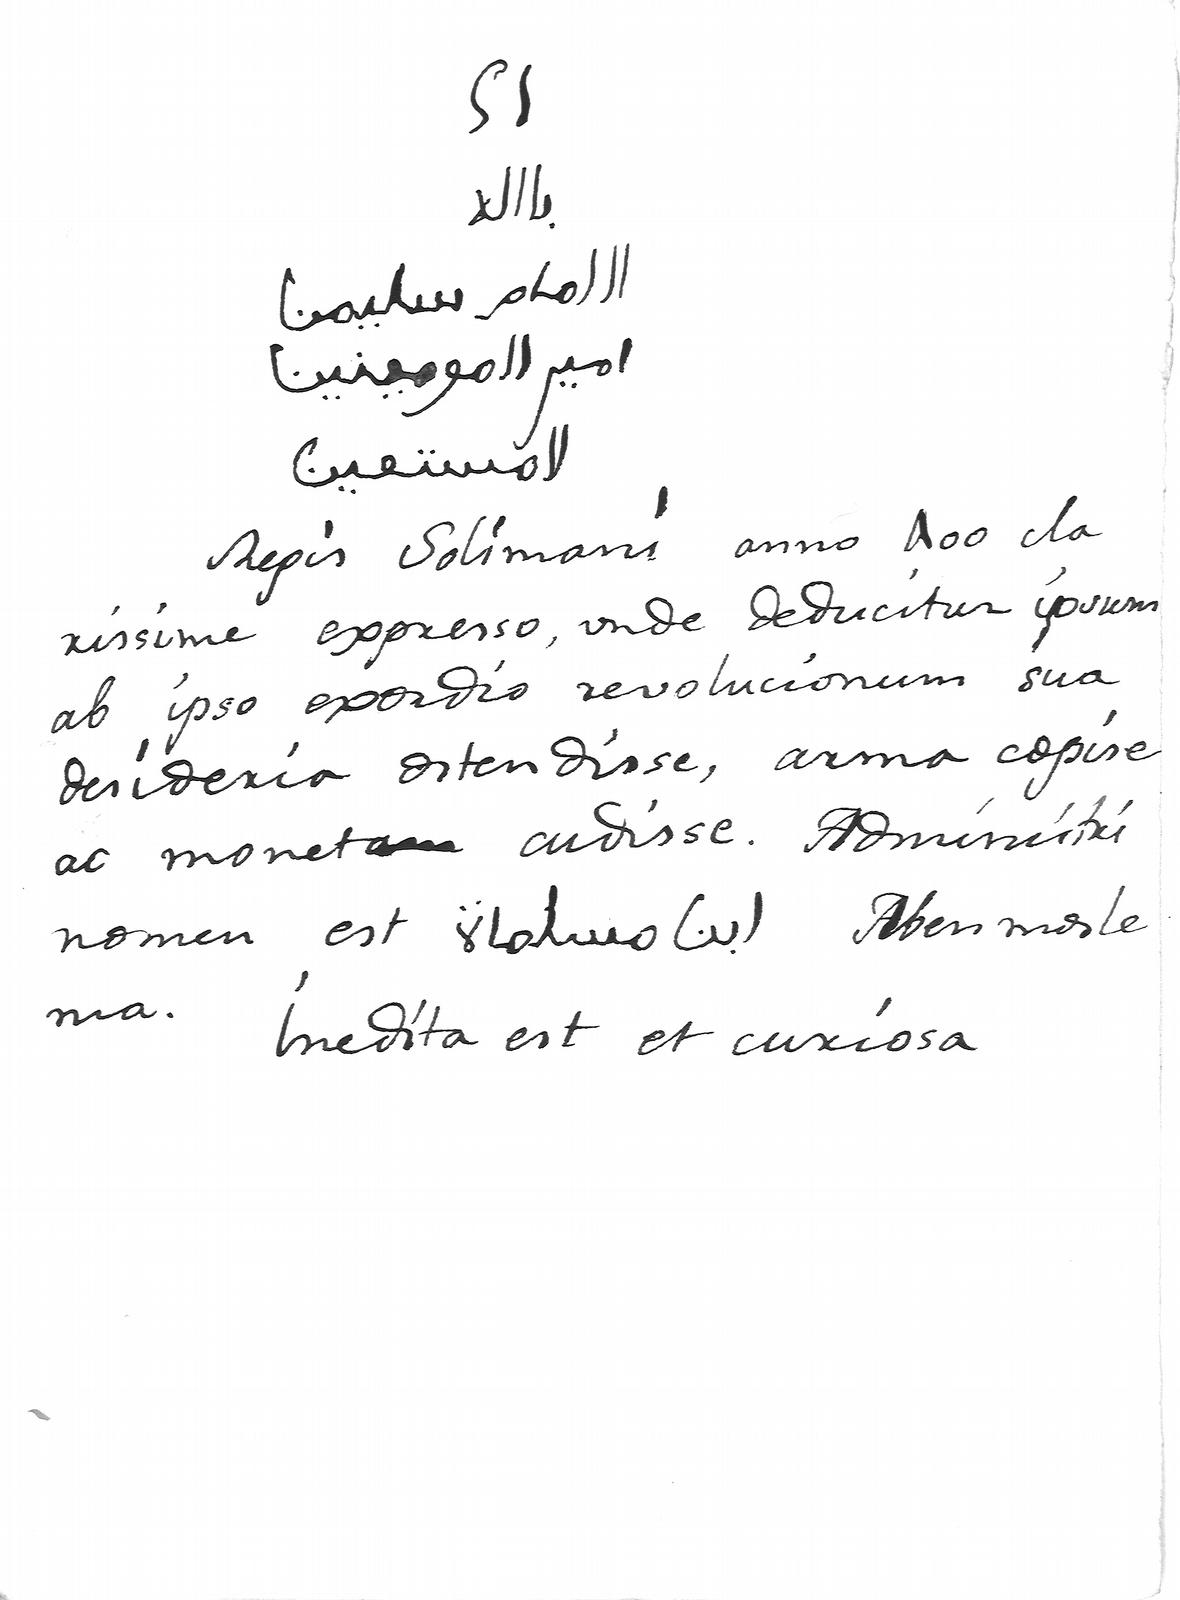 باالله
الامام سليمن
امير المومنين
المستعين
Regis Solimani anno 400 cla
rissime expresso, unde deducitur ipsum
ab ipso exordio revolucionum sua
desideria ostendisse, arma cepise
ac monetam cudisse. Administri
nomen est ابن مسلماة Abenmosle
ma.
Inedita est et curiosa